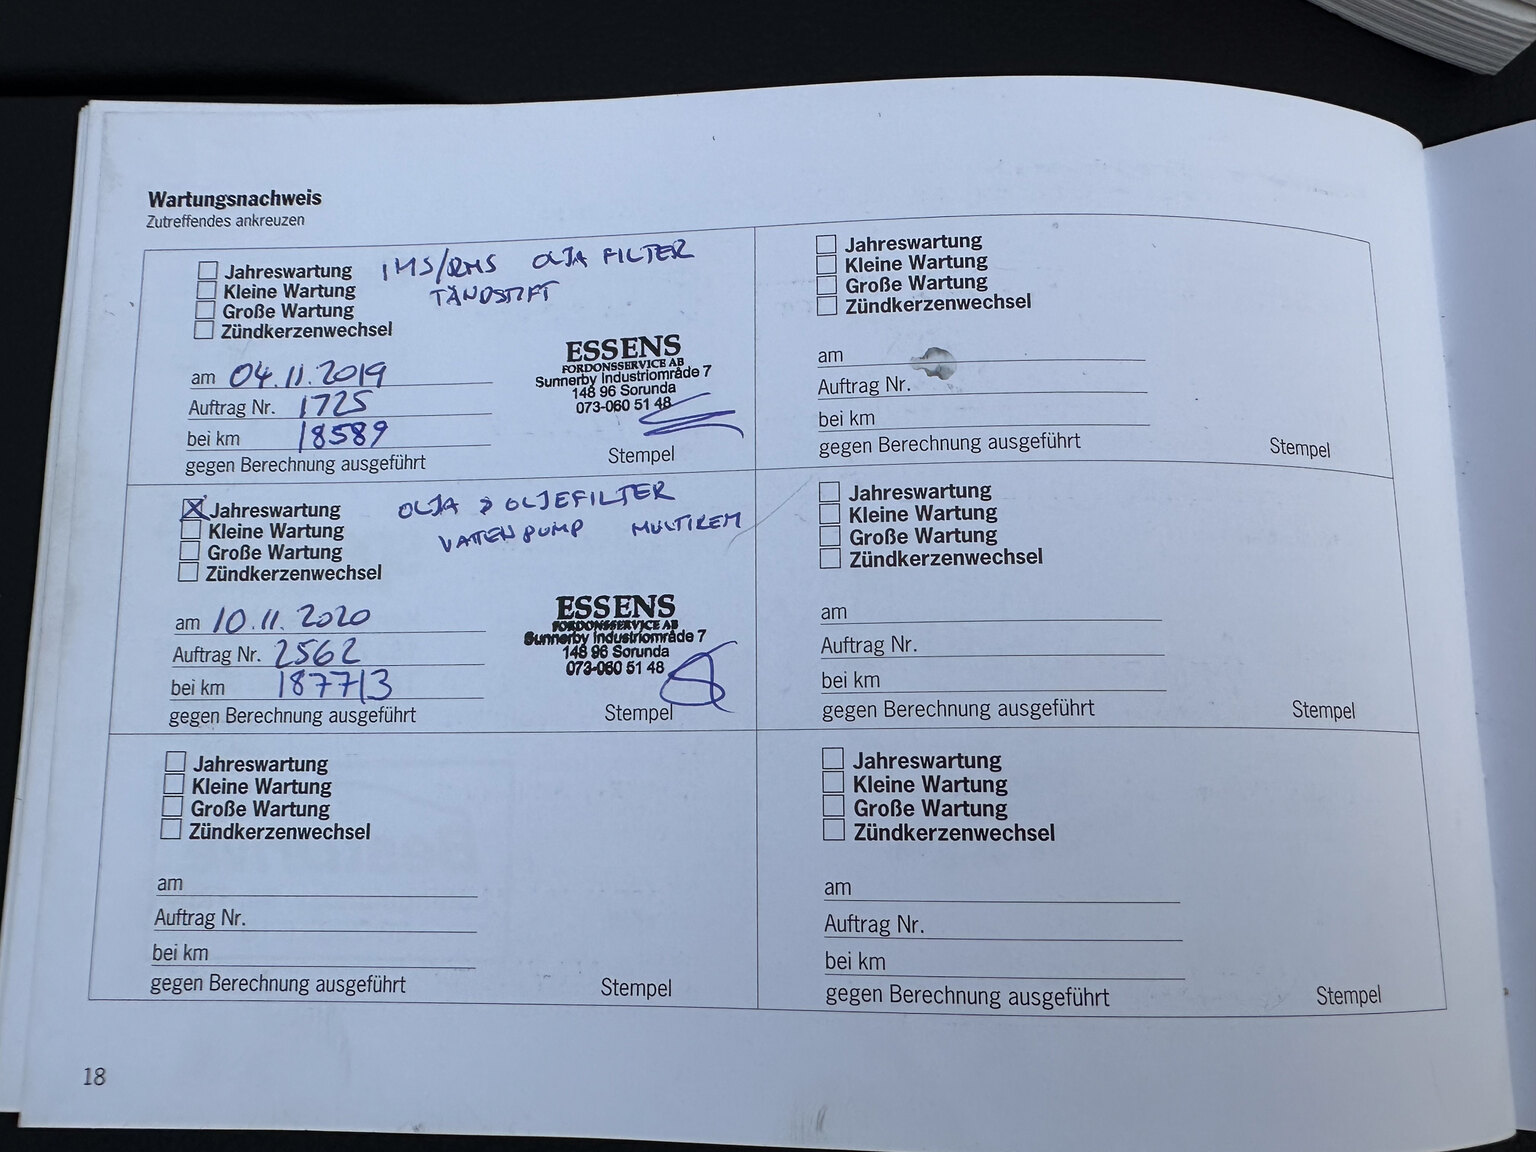 Wartungsnachweis
Zutreffendes ankreuzen
Jahreswartung IMS/RMS OLJA FILTER
Kleine Wartung TÄNDSTIFT
Große Wartung
Zündkerzenwechsel
am 04.11.2019
Auftrag Nr. 1725
bei km 18589
gegen Berechnung ausgeführt
ESSENS
FORDONSSERVICE AB
Sunnerby Industriområde 7
148 96 Sorunda
073-060 51 48
Stempel
Jahreswartung
Kleine Wartung
Große Wartung
Zündkerzenwechsel
am
Auftrag Nr.
bei km
gegen Berechnung ausgeführt
Stempel
Jahreswartung OLJA & OLJEFILTER
Kleine Wartung VATTENPUMP MULTIREM
Große Wartung
Zündkerzenwechsel
am 10.11.2020
Auftrag Nr. 2562
bei km 187713
gegen Berechnung ausgeführt
ESSENS
FORDONSSERVICE AB
Sunnerby Industriområde 7
148 96 Sorunda
073-060 51 48
Stempel
Jahreswartung
Kleine Wartung
Große Wartung
Zündkerzenwechsel
am
Auftrag Nr.
bei km
gegen Berechnung ausgeführt
Stempel
Jahreswartung
Kleine Wartung
Große Wartung
Zündkerzenwechsel
am
Auftrag Nr.
bei km
gegen Berechnung ausgeführt
Stempel
Jahreswartung
Kleine Wartung
Große Wartung
Zündkerzenwechsel
am
Auftrag Nr.
bei km
gegen Berechnung ausgeführt
Stempel
18